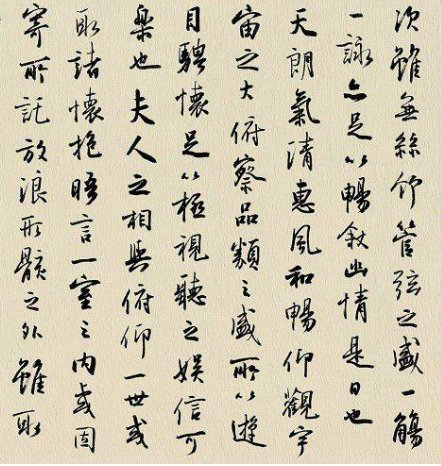 次雖無絲竹管弦之盛一觴
一詠亦足以暢敘幽情是日也
天朗氣清惠風和暢仰觀宇
宙之大俯察品類之盛所以遊
目騁懷足以極視聽之娛信可
樂也夫人之相與俯仰一世或
取諸懷抱晤言一室之內或因
寄所託放浪形骸之外雖取